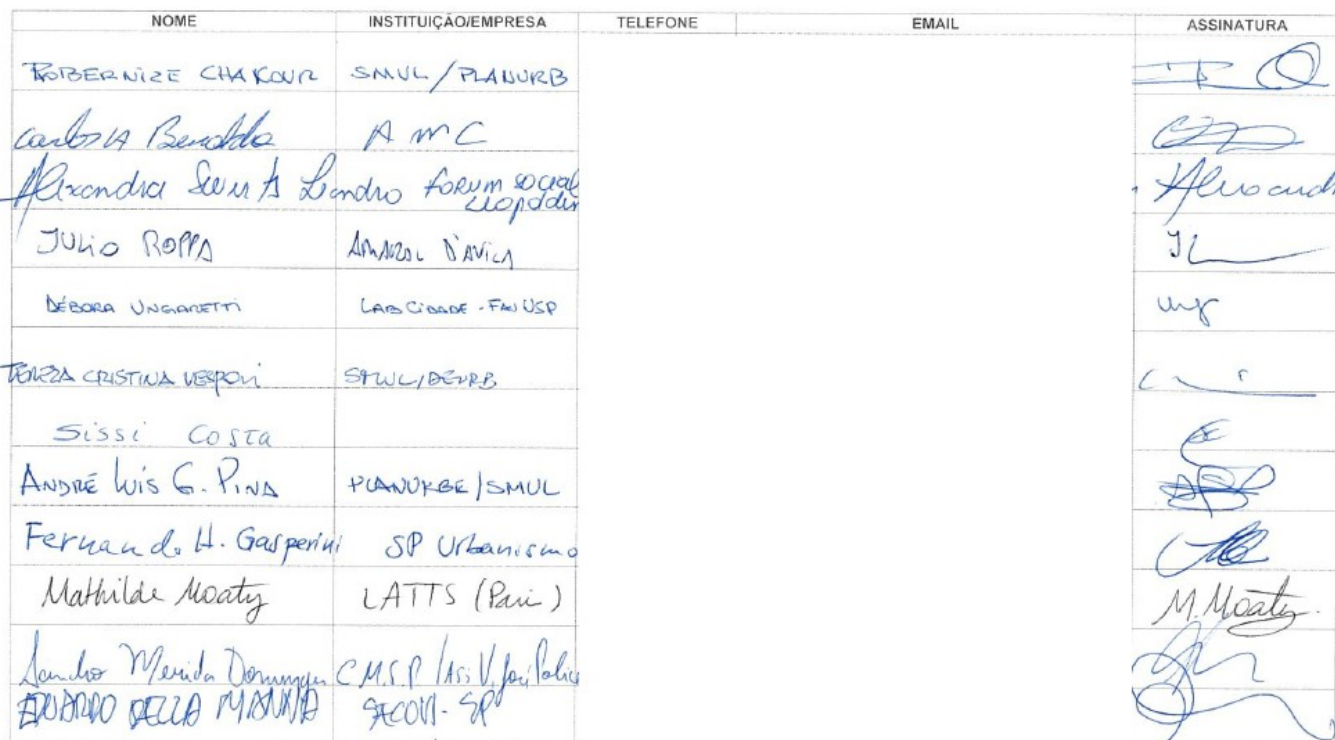 NOME INSTITUIÇÃO/EMPRESA TELEFONE EMAIL ASSINATURA
ROBERNIZE CHAKOUR SMUL/PLANURB
Carlos A Benedito A M C
Alexandra Leandro FORUM SOCIAL
JULIO ROPPA AMARAL D'AVILA
DÉBORA UNGARETTI LABCIDADE - FAUUSP
TEREZA CRISTINA VESPOLI SMUL/DEURB
SISSI COSTA
ANDRÉ LUIS G. PINA PLANURBE/SMUL
Fernando H. Gasperini SP Urbanismo
Mathilde Moaty LATTS (Paris) M. Moaty
Sandro Merida C.M.S.P./Ass. V. José Police
EDUARDO DELLA MANNA SECOVI-SP